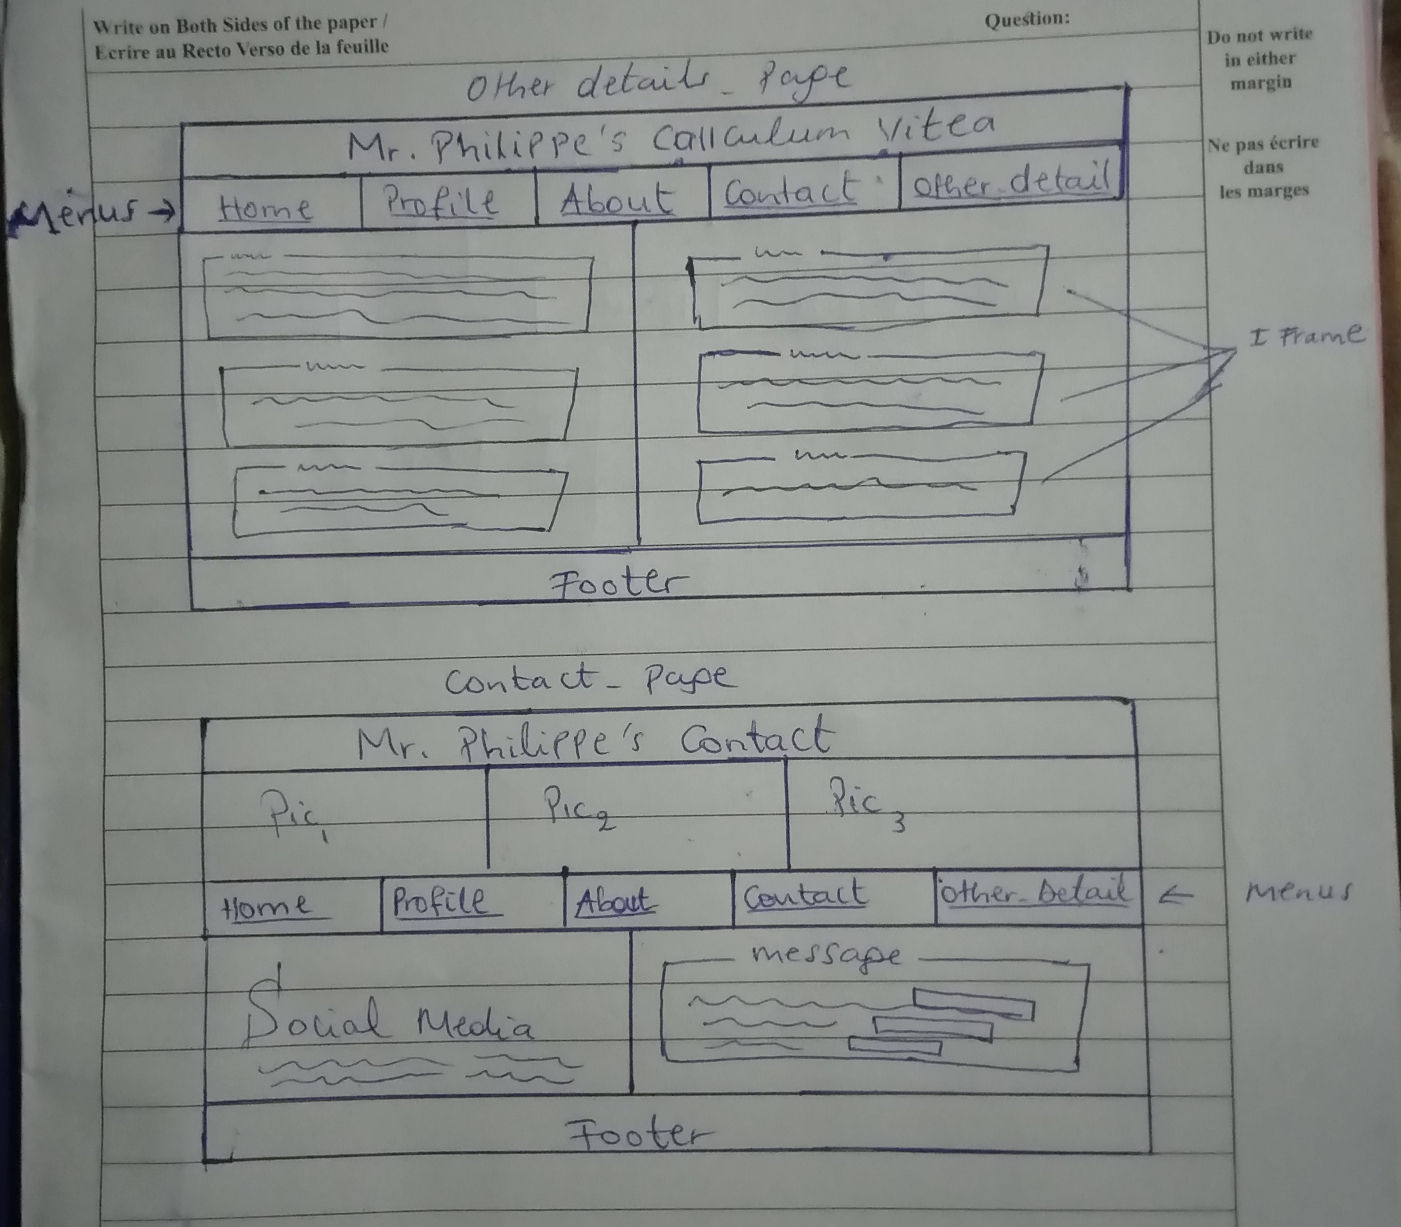 Write on Both Sides of the paper /
Ecrire au Recto Verso de la feuille
Question:
Do not write
in either
margin
Ne pas écrire
dans
les marges
Other details_ Page
Mr. Philippe's Callculum Vitea
Menus →
Home Profile About Contact Other_detail
I Frame
Footer
Contact_ Page
Mr. Philippe's Contact
Pic1 Pic2 Pic3
Home Profile About Contact Other_Detail ← Menus
message
Social Media
Footer